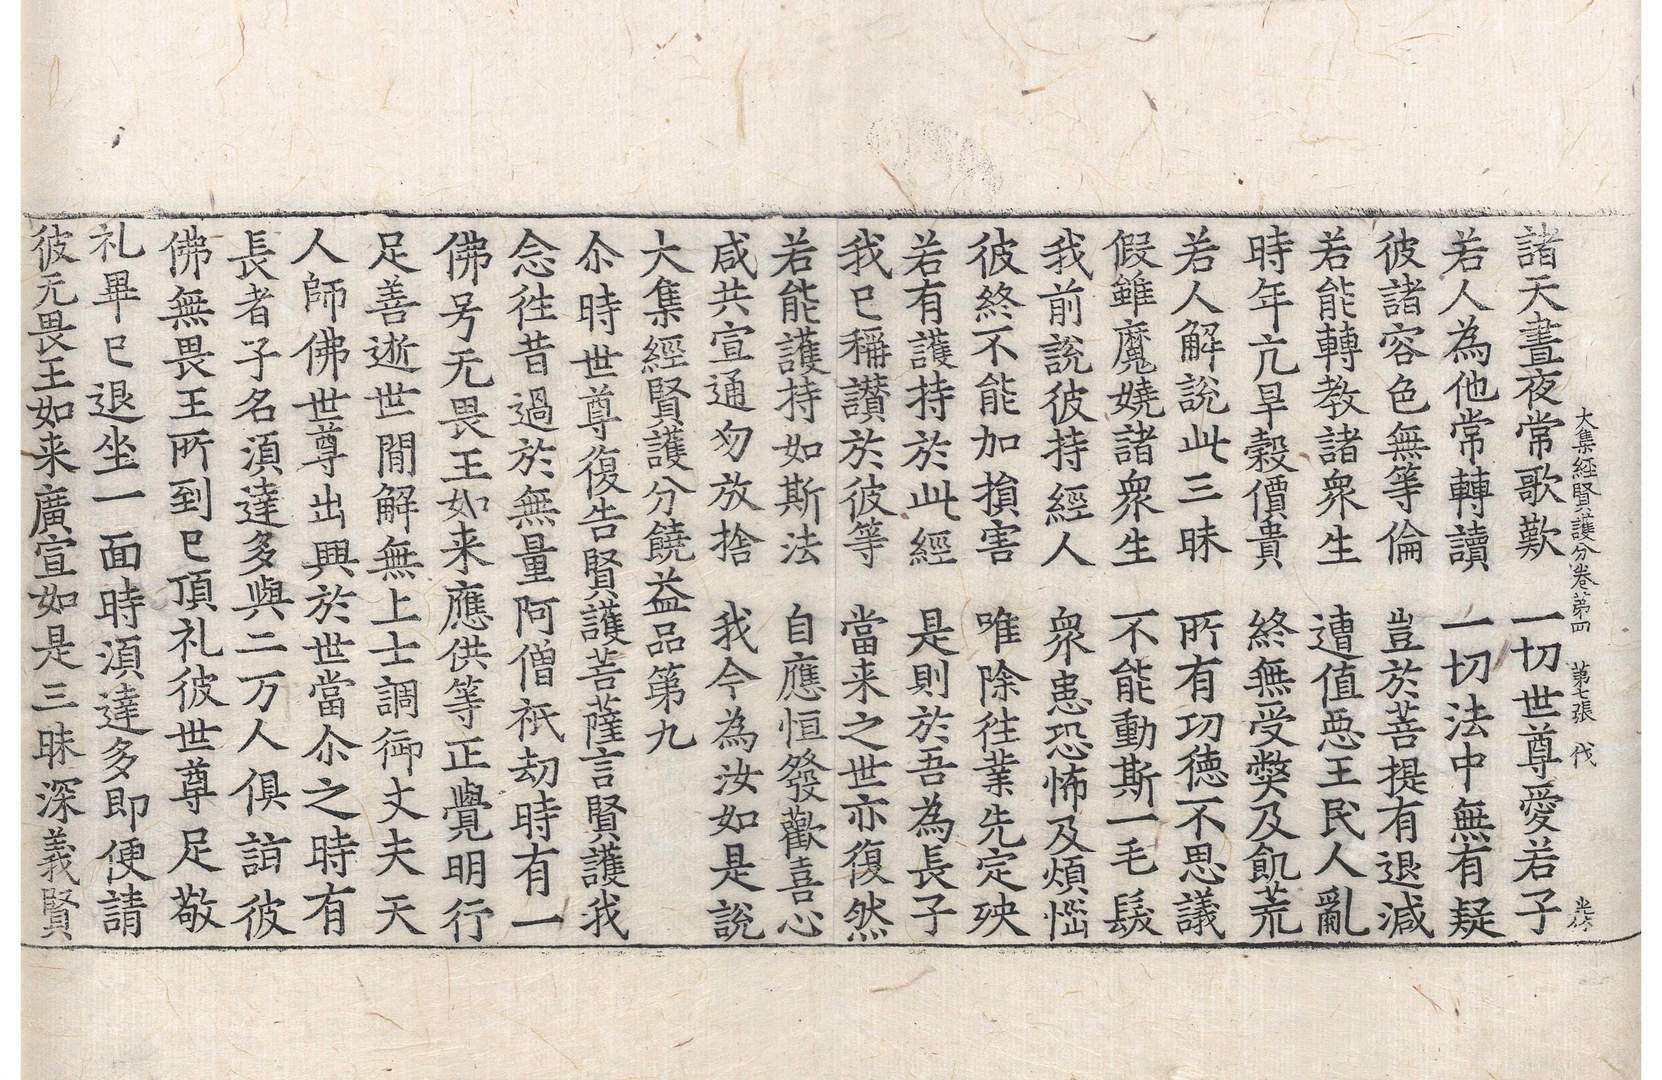 大集經賢護分卷第四 第七張 伐
諸天晝夜常歌歎 一切世尊愛若子
若人為他常轉讀 一切法中無有疑
彼諸容色無等倫 豈於菩提有退減
若能轉教諸衆生 遭值惡王民人亂
時年亢旱穀價貴 終無受弊及飢荒
若人解說此三昧 所有功德不思議
假雖魔嬈諸衆生 不能動斯一毛髮
我前說彼持經人 衆患恐怖及煩惱
彼終不能加損害 唯除往業先定殃
若有護持於此經 是則於吾為長子
我已稱讃於彼等 當来之世亦復然
若能護持如斯法 自應恒發歡喜心
咸共宣通勿放捨 我今為汝如是說
大集經賢護分饒益品第九
尒時世尊復告賢護菩薩言賢護我
念往昔過於無量阿僧祇劫時有一
佛号无畏王如来應供等正覺明行
足善逝世間解無上士調御丈夫天
人師佛世尊出興於世當尒之時有
長者子名湏達多與二万人俱詣彼
佛無畏王所到已頂礼彼世尊足敬
礼畢已退坐一面時湏達多即便請
彼无畏王如来廣宣如是三昧深義賢